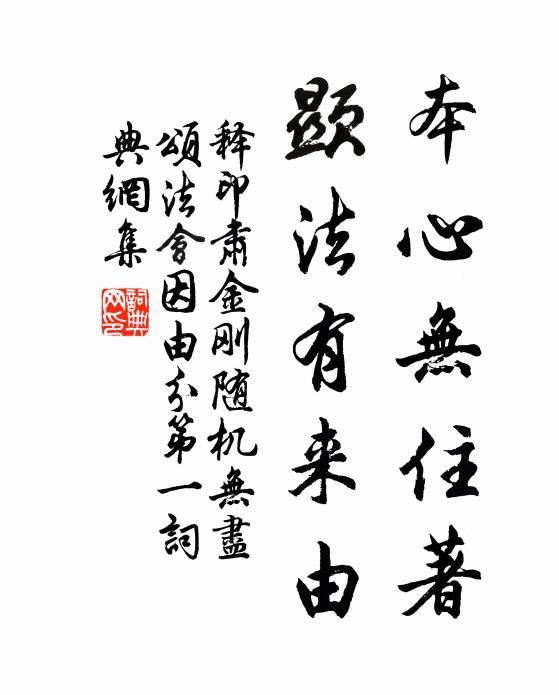 本心無住著
顯法有来由
释印肅金刚随机無盡
頌法會因由分第一詞
典網集
詞典
网印